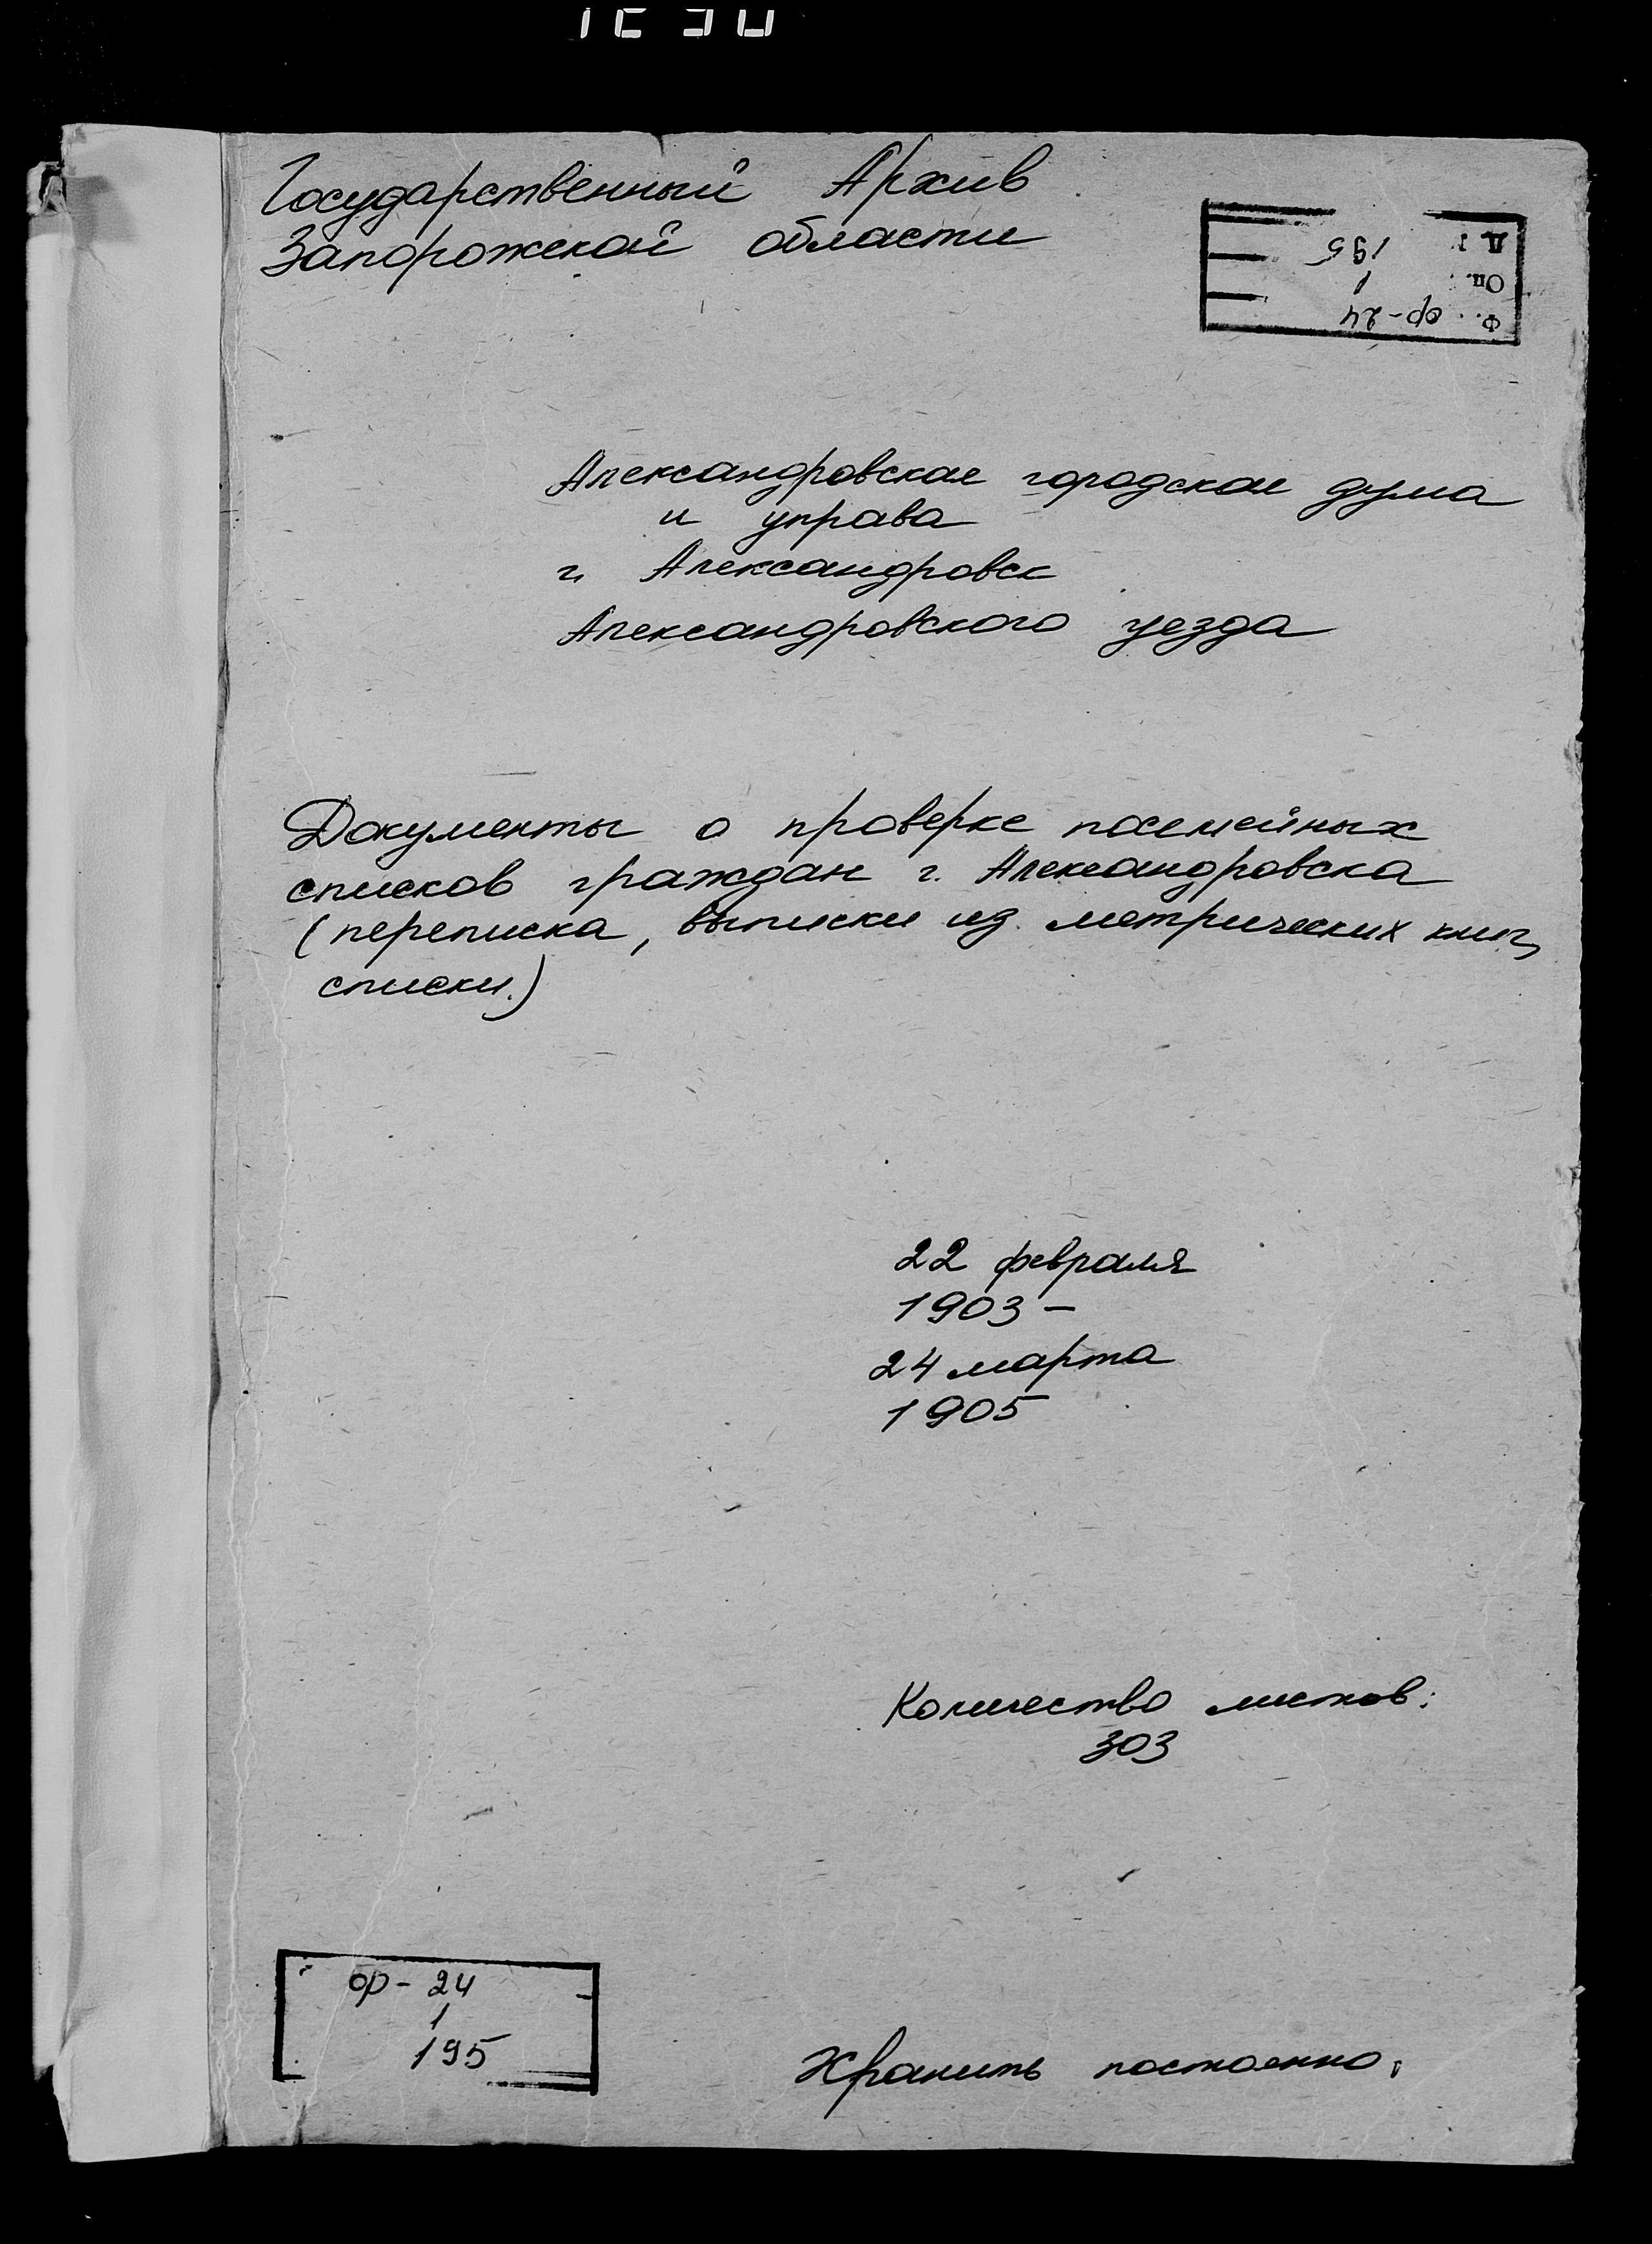 Государственный Архив
Запорожской области
Ф. ф-24
Оп. 1
Д 195
Александровская городская дума
и управа
г. Александровск
Александровского уезда
Документы о проверке посемейных
списков граждан г. Александровска
(переписка, выписки из метрических книг,
списки.)
22 февраля
1903 –
24 марта
1905
Количество листов:
303
ф- 24
1
195
Хранить постоянно.